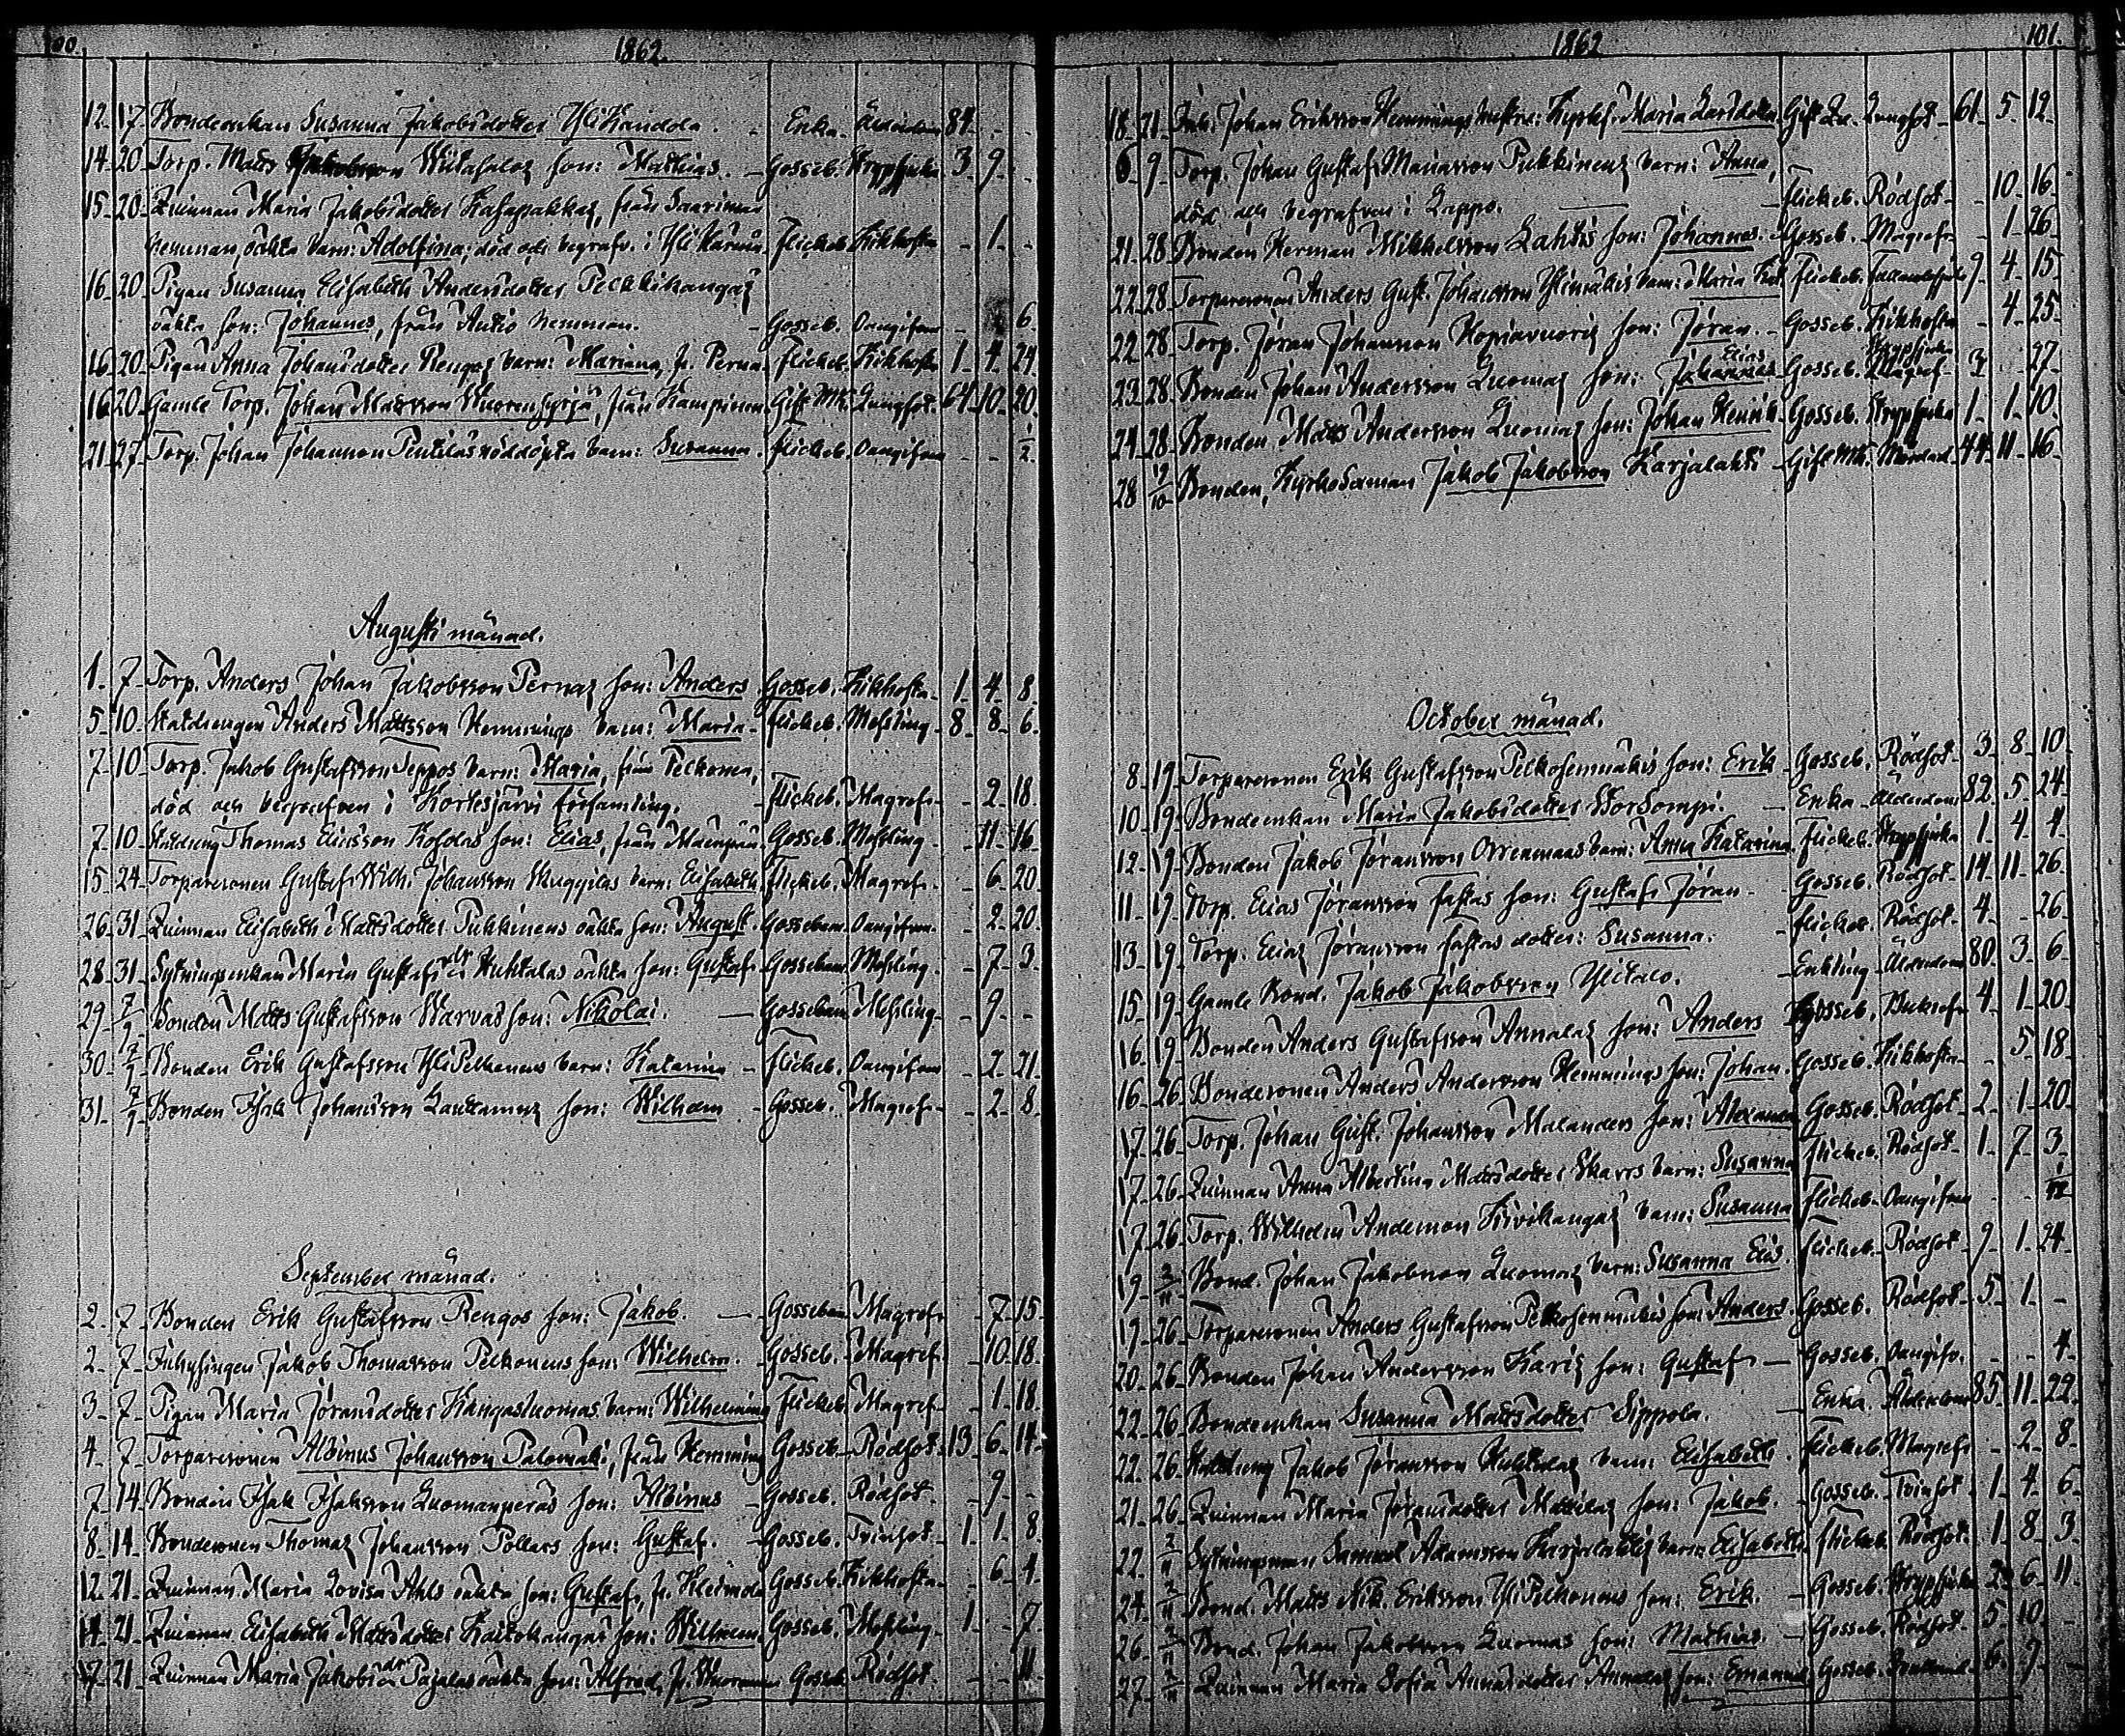 100.
1862.
12. 17 Bondeenkan Susanna Jakobsdotter Yli Kandola. - Enka. Ålderdom 84. - -
14. 20 Torp. Matts Witasalos son: Mathias. - Gosseb. Strypsjuka 3. 9. -
15. 20. Quinnan Maria Jakobsdotter Kasapakkas, från Saarimaa
hemman, oäkta barn: Adolfina; död och begrafv. i Ylikannu. Flickeb. Kikhosta - 1. -
16. 20 Pigan Susanna Elisabeth Andersdotter Pelkkikangas
oäkta son: Johannes, från Antio hemman. - Gosseb. Oangifven - 6.
16. 20. Pigan Anna Johansdotter Rengos barn: Mariana, fr. Perna. Flickeb. Kikhosta 1. 4. 24.
16 20. Gamle Torp. Johan Mattsson Wuorensyrjä, från Kampinen. Gift Mk. Lungsot. 64. 10. 20.
21. 27. Torp. Johan Johansson Penttilas nöddöpta barn: Susanna. Flickeb. Oangifven - - ½.
Augusti månad.
1. 7. Torp. Anders Johan Jakobsson Pernas son: Anders Gosseb. Kikhosta 1. 4. 8.
5. 10. Statdrengen Anders Mattsson Hemmings barn: Maria. Flickeb. Messling. 8. 8. 6.
7. 10. Torp. Jakob Gustafsson Seppos barn: Maria, från Pelkonen,
död och begrafven i Kortesjärvi församling. - Flickeb. Magref. - 2. 18.
7. 10. Statdreng Thomas Eliasson Koskas son: Elias, från Mäenpää. Gosseb. Messling. - 11. 16.
15. 24. Torparesonen Gustaf Wilh. Johansson barn: Elisabeth. Flickeb. Magref. - 6. 20.
26. 31. Quinnan Elisabeth Mattsdotter Pukkinens oäkta son: August. Gossebarn. Oangifven. - 2. 20.
28. 31. Sytningsenkan Maria Gustafsdr Huhtalas oäkta son: Gustaf. Gossebarn. Messling. - 7. 3.
29. 7/9 Bonden Matts Gustafsson Warvas son: Nikolai. - Gossebarn Messling. - 9. -
30. 7/9 Bonden Erik Gustafsson Yli Pelkonens barn: Katarina - Flickeb. Oangifven - 2. 21.
31. 7/9 Bonden Isak Johansson Lautamus son: Wilhelm - Gosseb. Magref. - 2. 8.
September månad.
2. 7. Bonden Erik Gustafsson Rengos son: Jakob. - Gossebarn Magref. - 7. 15.
2. 7. Inhysingen Jakob Thomasson Pelkonens son: Wilhelm. Gosseb. Magref. - 10. 18.
3. 7. Pigan Maria Jöransdotter Kangasluomas barn: Wilhelmina Flickeb Magref. - 1. 18.
4. 7. Torparesonen Albinus Johansson Palomäki, från Hemming Gosseb. Rödsot. 13. 6. 14.
7. 14. Bonden Isak Isaksson Luomanperäs son: Albinus - Gosseb. Rödsot. - 9. -
8. 14. Bondesonen Thomas Johansson Pollars son: Gustaf. - Gosseb. Tvinsot. 1. 1. 8.
12. 21. Quinnan Maria Lovisa Ahls oäkta son: Gustaf, fr. Heimola Gosseb. Kikhosta. - 6. 4.
14. 21. Quinnan Elisabeth Mattsdotter Kaitokangas son: Wilhelm. Gosseb. Messling. 1. - 7.
17. 21. Quinnan Maria Jakobsdr Pajalas oäkta son: Alfred, fr. Gosseb. Rödsot. - - 11.
1862
101.
18. 21. Inh. Johan Eriksson Hemmings hustru: Maria Larsdotter Gift Qu. Lungsot. 61. 5. 12.
6. 9. Torp. Johan Gustaf Mariasson Pukkinens barn: Anna,
död och begrafven i Lappo. - Flickeb. Rödsot. - 10. 16.
21. 28. Bonden Herman Mikkelsson Lahtis son: Johannes. Gosseb. Magref. - 1. 26.
22. 28. Torparesonen Anders Gust. Johansson Ylimäkis barn: Maria Flickeb. 9. 4. 15.
22. 28. Torp. Jöran Johansson Kopiavuoris son: Jöran. - Gosseb. Kikhosta - 4. 25.
23. 28. Bonden Johan Andersson Luomas son: Johannes Elias Gosseb. Strypsjuka Magref. 3. 27.
24. 28. Bonden Matts Andersson Luomas son: Johan Henrik. Gosseb. Strypsjuka 1. 1. 10.
28 19/10 Bonden, Kyrkosexman Jakob Jakobsson Karjalahti - Gift Mk. Mördad. 44. 11. 16.
October månad.
8. 19. Torparesonen Erik Gustafsson Pelkosenmäkis son: Erik Gosseb. Rödsot. 3. 8. 10.
10. 19. Bondeenkan Maria Jakobsdotter - Enka. Ålderdom 82. 5. 24.
12. 19. Bonden Jakob Jöransson Orrenmaas barn: Anna Katarina. Flickeb. Strypsjuka 1. 4. 4.
11. 19. Torp. Elias Jöransson Fastas son: Gustaf Jöran - Gosseb. Rödsot. 14. 11. 26.
13. 19. Torp. Elias Jöransson Fastas dotter: Susanna. - Flickeb. Rödsot. 4. - 26.
15. 19. Gamle Bond. Jakob Jakobsson Ylitalo. - Enkling. Ålderdom 80. 3. 6.
16. 19. Bonden Anders Gustafsson Annalas son: Anders Gosseb. Bukref. 4. 1. 20.
16. 26. Bondesonen Anders Andersson Hemmings son: Johan. Gosseb. Kikhosta - 5. 18.
17. 26. Torp. Johan Gust. Johansson Malanders son: Alexander Gosseb. Rödsot. 2. 1. 20.
17. 26. Quinnan Anna Albertina Mattsdotter Skarrs barn: Susanna Flickeb. Rödsot. 1. 7. 3.
17. 26. Torp. Wilhelm Andersson Kivikangas barn: Susanna Flickeb. Oangifven
19. 2/11 Bond. Johan Jakobsson Luomas barn: Susanna Elis. Flickeb. Rödsot. 9. 1. 24.
19. 26. Torparesonen Anders Gustafsson Pelkosenmäkis son: Anders. Gosseb. Rödsot. 5. 1. -
20. 26. Bonden Johan Andersson Karis son: Gustaf - Gosseb. Oangifv. - - 4.
22. 26. Bondeenkan Susanna Mattsdotter Sippola. - Enka. Ålderdom 85. 11. 22.
22. 26. Statdreng Jakob Jöransson Huhtalas barn: Elisabeth. Flickeb. Magref. - 2. 8.
21. 26. Quinnan Maria Jöransdotter Mattilas son: Jakob. Gosseb. Tvinsot. 1. 4. 6.
22. 2/11 Sytningsman Samuel Adamsson Karjalahtis barn: Elisabeth. Flickeb. Rödsot. 1. 8. 3.
24. 2/11 Bond. Matts Nik. Eriksson Yli Pelkonens son: Erik. - Gosseb. Strypsjuka 2. 6. 11.
26. 2/11 Bond. Johan Jakobsson Luomas son: Mathias. - Gosseb. Rödsot. 5. 10. -
27. 2/11 Quinnan Maria Sofia Annalas son: Emanuel Gosseb. 6. 9. -